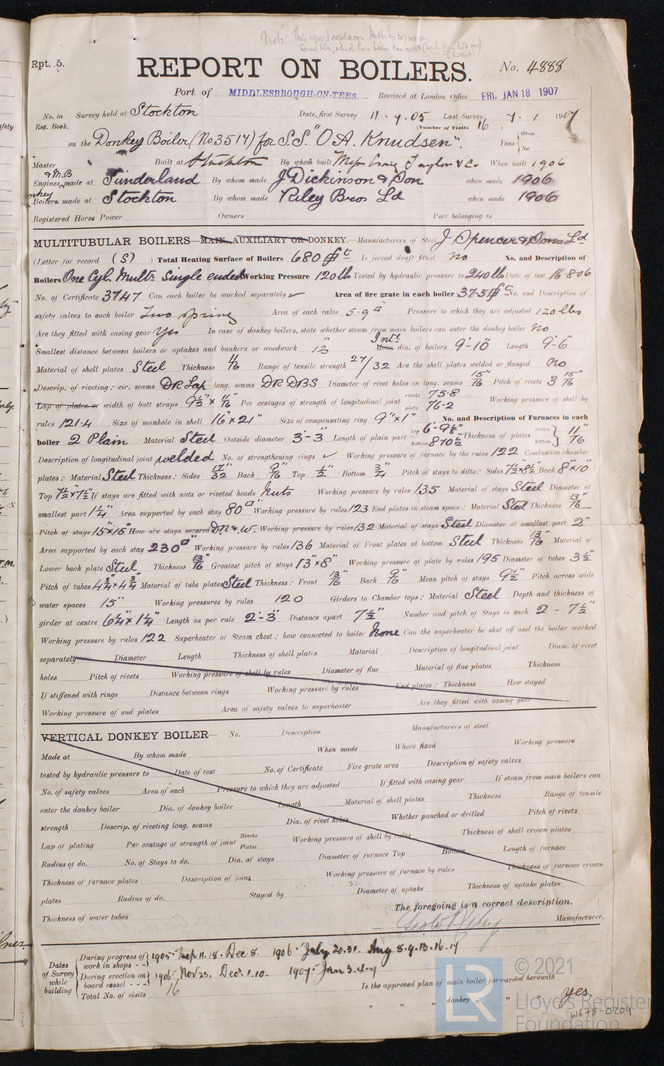 Rpt. 5.
REPORT ON BOILERS.
No. 4888
Port of MIDDLESBROUGH-ON-TEES Received at London Office FRI. JAN 18 1907
No. in Survey held at Stockton Date, first Survey 11.9.05 Last Survey 7.1.1907
Reg. Book. (Number of Visits 16
on the Donkey Boiler (No 3517) for S.S. "O. A. Knudsen". Tons Gross Net
Master Built at Stockton By whom built Messrs Craig Taylor & Co When built 1906
& M.B
Engines made at Sunderland By whom made J Dickinson & Son when made 1906
Donkey
Boilers made at Stockton By whom made Riley Bros Ld when made 1906
Registered Horse Power Owners Port belonging to
MULTITUBULAR BOILERS MAIN, AUXILIARY OR DONKEY. Manufacturers of Steel J Spencer & Sons Ld
(Letter for record (S)) Total Heating Surface of Boilers 680 Is forced draft fitted No No. and Description of
Boilers One Cyl. Mult. Single ended Working Pressure 120 lb Tested by hydraulic pressure to 240 lb Date of test 16.8.06
No. of Certificate 3747 Can each boiler be worked separately ✓ Area of fire grate in each boiler 37.5 No. and Description of
safety valves to each boiler Two spring Area of each valve 5.9" Pressure to which they are adjusted 120 lbs
Are they fitted with easing gear Yes In case of donkey boilers, state whether steam from main boilers can enter the donkey boiler No
Smallest distance between boilers or uptakes and bunkers or woodwork 12" Int. dia. of boilers 9'-10" Length 9'-6"
Material of shell plates Steel Thickness 11/16 Range of tensile strength 27/32 Are the shell plates welded or flanged No
Descrip. of riveting: cir. seams DR Lap long. seams DR DBS Diameter of rivet holes in long. seams 15/16" Pitch of rivets 3 15/16"
Lap of plates or width of butt straps 9 1/2" x 11/16" Per centages of strength of longitudinal joint rivets 75.8 plate 76.2 Working pressure of shell by
rules 121.4 Size of manhole in shell 16" x 21" Size of compensating ring 9" x 1" No. and Description of Furnaces in each
boiler 2 Plain Material Steel Outside diameter 3'-3" Length of plain part top 6'-9 5/8" bottom Thickness of plates crown bottom 11/16"
Description of longitudinal joint welded No. of strengthening rings ✓ Working pressure of furnace by the rules 122 Combustion chamber
plates: Material Steel Thickness: Sides 17/32" Back 9/16" Top 1/2" Bottom 3/4" Pitch of stays to ditto: Sides 7 1/2" x 8 1/2" Back 8" x 10"
Top 7 1/2" x 7 1/2" If stays are fitted with nuts or riveted heads Nuts Working pressure by rules 135 Material of stays Steel Diameter at
smallest part 1 1/4" Area supported by each stay 80" Working pressure by rules 123 End plates in steam space: Material Steel Thickness 13/16"
Pitch of stays 15" x 15" How are stays secured DN & W. Working pressure by rules 132 Material of stays Steel Diameter at smallest part 2"
Area supported by each stay 230" Working pressure by rules 136 Material of Front plates at bottom Steel Thickness 13/16" Material of
Lower back plate Steel Thickness 13/16" Greatest pitch of stays 13" x 8" Working pressure of plate by rules 195 Diameter of tubes 3 1/2"
Pitch of tubes 4 3/4" x 4 3/4" Material of tube plates Steel Thickness: Front 13/16" Back 9/16" Mean pitch of stays 9 1/2" Pitch across wide
water spaces 15" Working pressures by rules 120 Girders to Chamber tops: Material Steel Depth and thickness of
girder at centre 6 1/4" x 1 1/4" Length as per rule 2'-3" Distance apart 7 1/2" Number and pitch of Stays in each 2 - 7 1/2"
Working pressure by rules 122 Superheater or Steam chest; how connected to boiler None Can the superheater be shut off and the boiler worked
separately Diameter Length Thickness of shell plates Material Description of longitudinal joint Diam. of rivet
holes Pitch of rivets Working pressure of shell by rules Diameter of flue Material of flue plates Thickness
If stiffened with rings Distance between rings Working pressure by rules End plates: Thickness How stayed
Working pressure of end plates Area of safety valves to superheater Are they fitted with easing gear
VERTICAL DONKEY BOILER— No. Description Manufacturers of steel
Made at By whom made When made Where fixed Working pressure
tested by hydraulic pressure to Date of test No. of Certificate Fire grate area Description of safety valves
No. of safety valves Area of each Pressure to which they are adjusted If fitted with easing gear If steam from main boilers can
enter the donkey boiler Dia. of donkey boiler Length Material of shell plates Thickness Range of tensile
strength Descrip. of riveting long. seams Dia. of rivet holes Whether punched or drilled Pitch of rivets
Lap of plating Per centage of strength of joint Rivets Plates Working pressure of shell by rules Thickness of shell crown plates
Radius of do. No. of Stays to do. Dia. of stays Diameter of furnace Top Bottom Length of furnace
Thickness of furnace plates Description of joint Working pressure of furnace by rules Thickness of furnace crown
plates Radius of do. Stayed by Diameter of uptake Thickness of uptake plates
Thickness of water tubes The foregoing is a correct description,
Manufacturer.
Dates of Survey while building
During progress of work in shops - - 1905 Sep 11.18. Dec 8. 1906. July 20.31. Aug 8.9.13.16.17
During erection on board vessel - - - 1906 Nov 23. Dec 1.10. 1907. Jan 3.4.7
Total No. of visits 16 Is the approved plan of main boiler forwarded herewith
" " " donkey " " Yes.
W678-0204
LR
© 2021
Lloyd's Register
Foundation